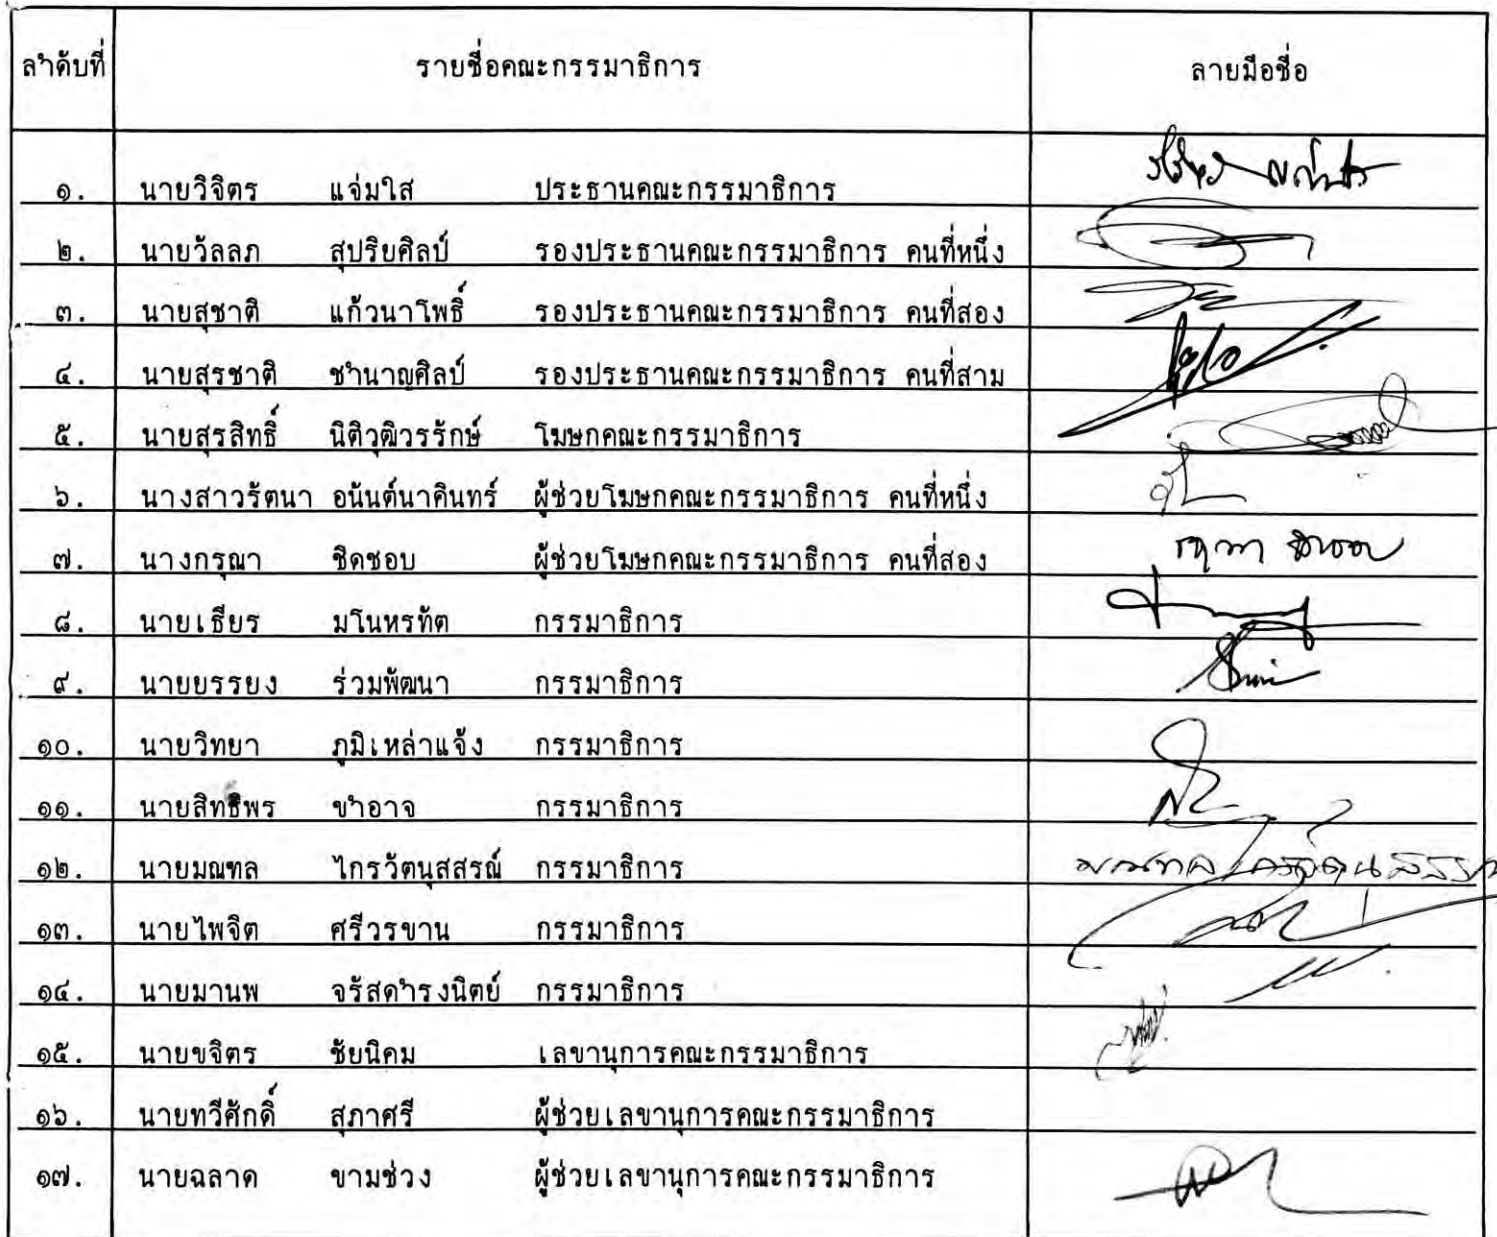 ลำดับที่ รายชื่อคณะกรรมาธิการ ลายมือชื่อ
๑. นายวิจิตร แจ่มใส ประธานคณะกรรมาธิการ
๒. นายวัลลภ สุปริยศิลป์ รองประธานคณะกรรมาธิการ คนที่หนึ่ง
๓. นายสุชาติ แก้วนาโพธิ์ รองประธานคณะกรรมาธิการ คนที่สอง
๔. นายสุรชาติ ชำนาญศิลป์ รองประธานคณะกรรมาธิการ คนที่สาม
๕. นายสุรสิทธิ์ นิติวุฒิวรรักษ์ โฆษกคณะกรรมาธิการ
๖. นางสาวรัตนา อนันต์นาคินทร์ ผู้ช่วยโฆษกคณะกรรมาธิการ คนที่หนึ่ง
๗. นางกรุณา ชิดชอบ ผู้ช่วยโฆษกคณะกรรมาธิการ คนที่สอง
๘. นายเธียร มโนหรทัต กรรมาธิการ
๙. นายบรรยง ร่วมพัฒนา กรรมาธิการ
๑๐. นายวิทยา ภูมิเหล่าแจ้ง กรรมาธิการ
๑๑. นายสิทธิพร ขำอาจ กรรมาธิการ
๑๒. นายมณฑล ไกรวัตนุสสรณ์ กรรมาธิการ มณฑล ไกรวัตนุสสรณ์
๑๓. นายไพจิต ศรีวรขาน กรรมาธิการ
๑๔. นายมานพ จรัสดำรงนิตย์ กรรมาธิการ
๑๕. นายขจิตร ชัยนิคม เลขานุการคณะกรรมาธิการ
๑๖. นายทวีศักดิ์ สุภาศรี ผู้ช่วยเลขานุการคณะกรรมาธิการ
๑๗. นายฉลาด ขามช่วง ผู้ช่วยเลขานุการคณะกรรมาธิการ